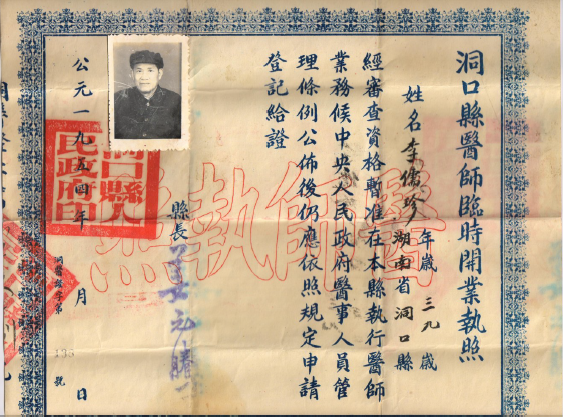 洞口縣醫師臨時開業執照
姓名李儒珍年歲三九歲
湖南省洞口縣
經審查資格暫准在本縣執行醫師
業務候中央人民政府醫事人員管
理條例公佈後仍應依照規定申請
登記給證
醫師執照
縣長
公元一九五四年 月 日
洞口縣人民政府印
號